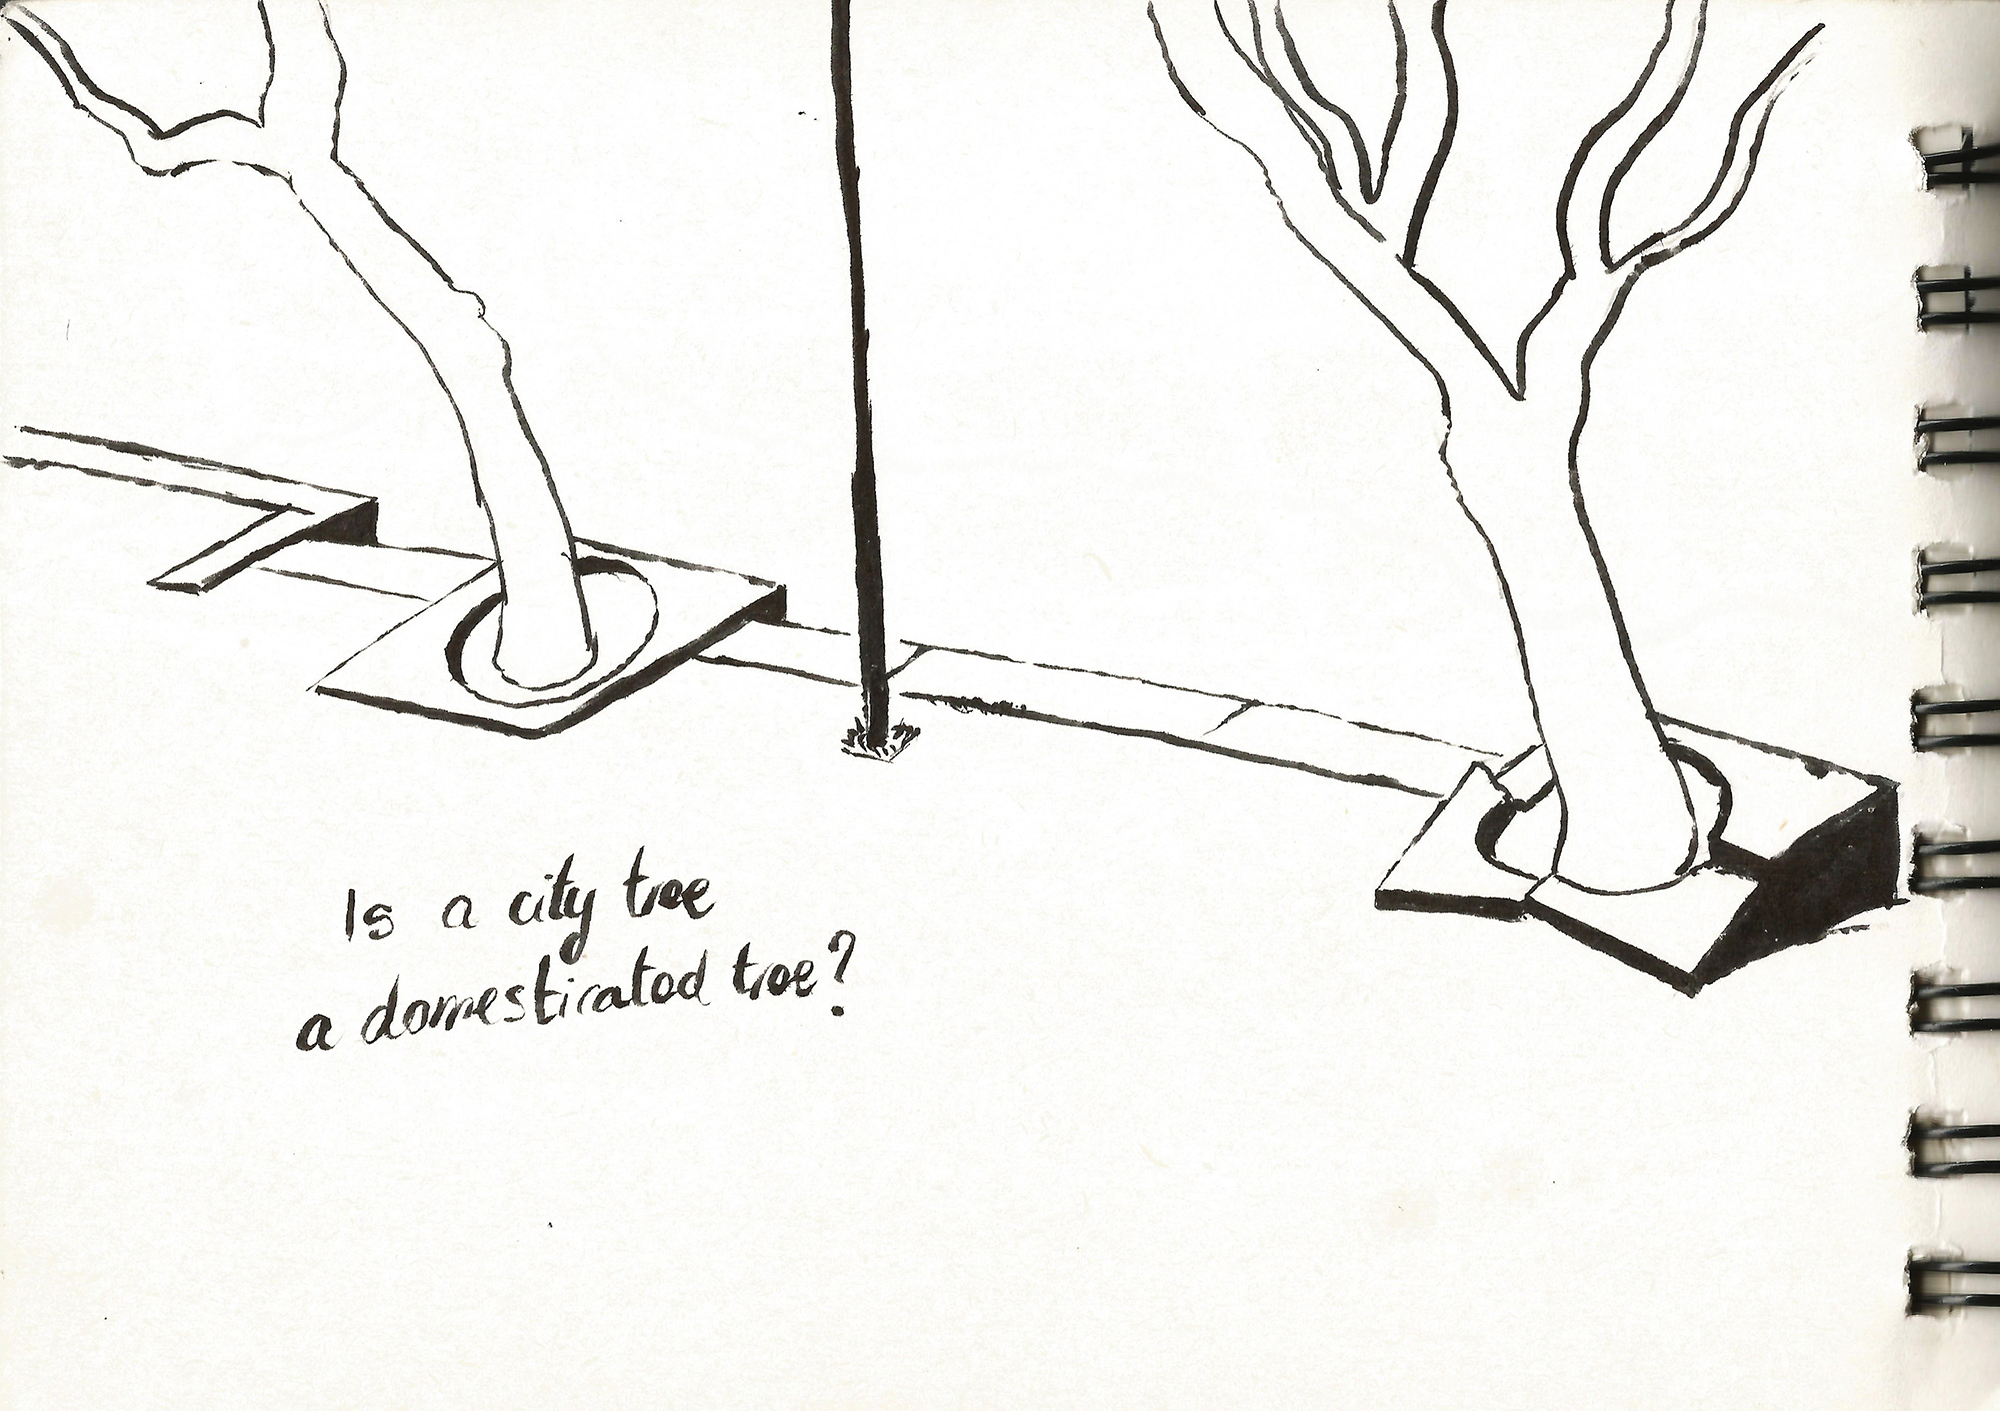 Is a city tree
a domesticated tree?